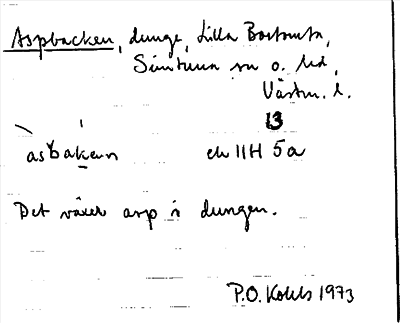 Aspbacken, dunge, Lilla
Simtuna sn o. hd,
Västm. l.
13
asbakan ek 11H 5a
Det växer asp i dungen.
P.O. 1973